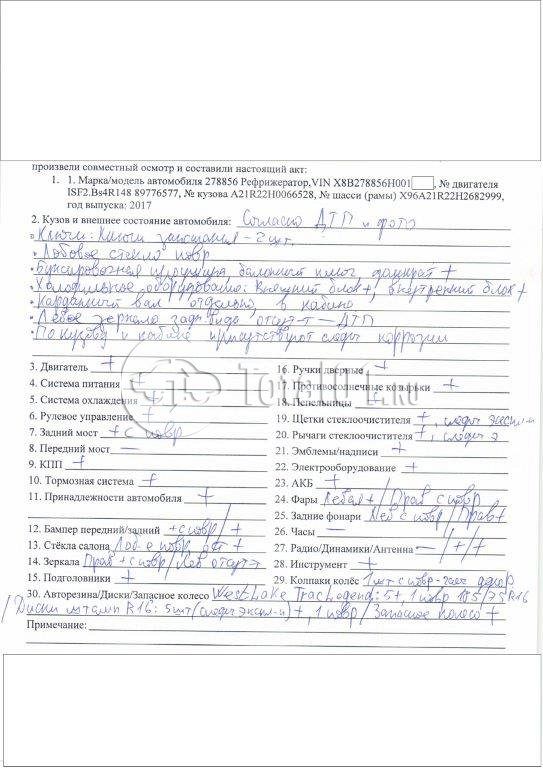 произвели совместный осмотр и составили настоящий акт:
1. 1. Марка/модель автомобиля 278856 Рефрижератор,VIN X8B278856H001, № двигателя
ISF2.Bs4R148 89776577, № кузова A21R22H0066528, № шасси (рамы) X96A21R22H2682999,
год выпуска: 2017
2. Кузов и внешнее состояние автомобиля: Согласно ДТП и фото
• Ключи: Ключи зажигания - 2 шт.
• Лобовое стекло повр
• Буксировочная проушина, балонный ключ, домкрат +
• Холодильное оборудование: внешний блок +, внутренний блок +
• Карданный вал отдельно, в кабине
• Левое зеркало задн. вида отсут-т — ДТП
• По кузову и кабине присутствуют следы коррозии
3. Двигатель +
4. Система питания +
5. Система охлаждения +
6. Рулевое управление +
7. Задний мост + с повр
8. Передний мост —
9. КПП +
10. Тормозная система +
11. Принадлежности автомобиля +
12. Бампер передний/задний + с повр / +
13. Стёкла салона Лоб-е повр, ост +
14. Зеркала Прав + с повр / Лев отсут-т
15. Подголовники +
16. Ручки дверные +
17. Противосолнечные козырьки +
18. Пепельницы +
19. Щетки стеклоочистителя +, следы экспл-и
20. Рычаги стеклоочистителя +, следы э
21. Эмблемы/надписи +
22. Электрооборудование +
23. АКБ +
24. Фары Левая + / Прав с повр
25. Задние фонари Лев с повр / Прав +
26. Часы —
27. Радио/Динамики/Антенна — / + / +
28. Инструмент +
29. Колпаки колёс 1 шт с повр
30. Авторезина/Диски/Запасное колесо WestLake : 5 +, 1 повр 185/75 R16
/ Диски штамп R16: 5 шт (следы экспл-и) +, 1 повр / Запасное колесо +
Примечание:
TOTAL01.ru